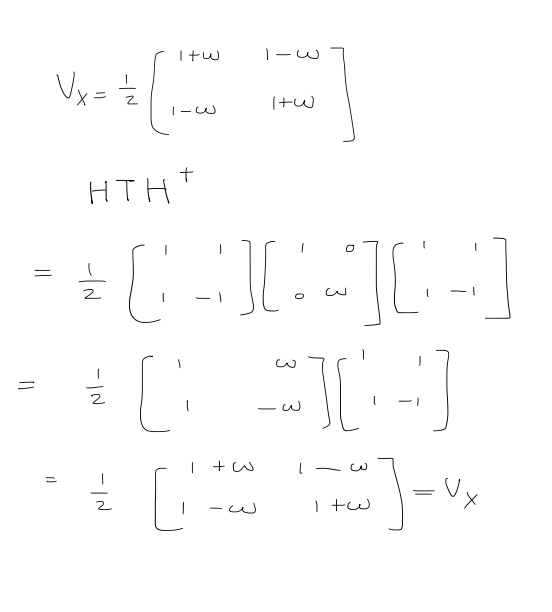 V_X = 1/2 [ 1+ω  1−ω ; 1−ω  1+ω ]
H T H^+
= 1/2 [ 1  1 ; 1  −1 ] [ 1  0 ; 0  ω ] [ 1  1 ; 1  −1 ]
= 1/2 [ 1  ω ; 1  −ω ] [ 1  1 ; 1  −1 ]
= 1/2 [ 1 + ω  1 − ω ; 1 − ω  1 + ω ] = V_X